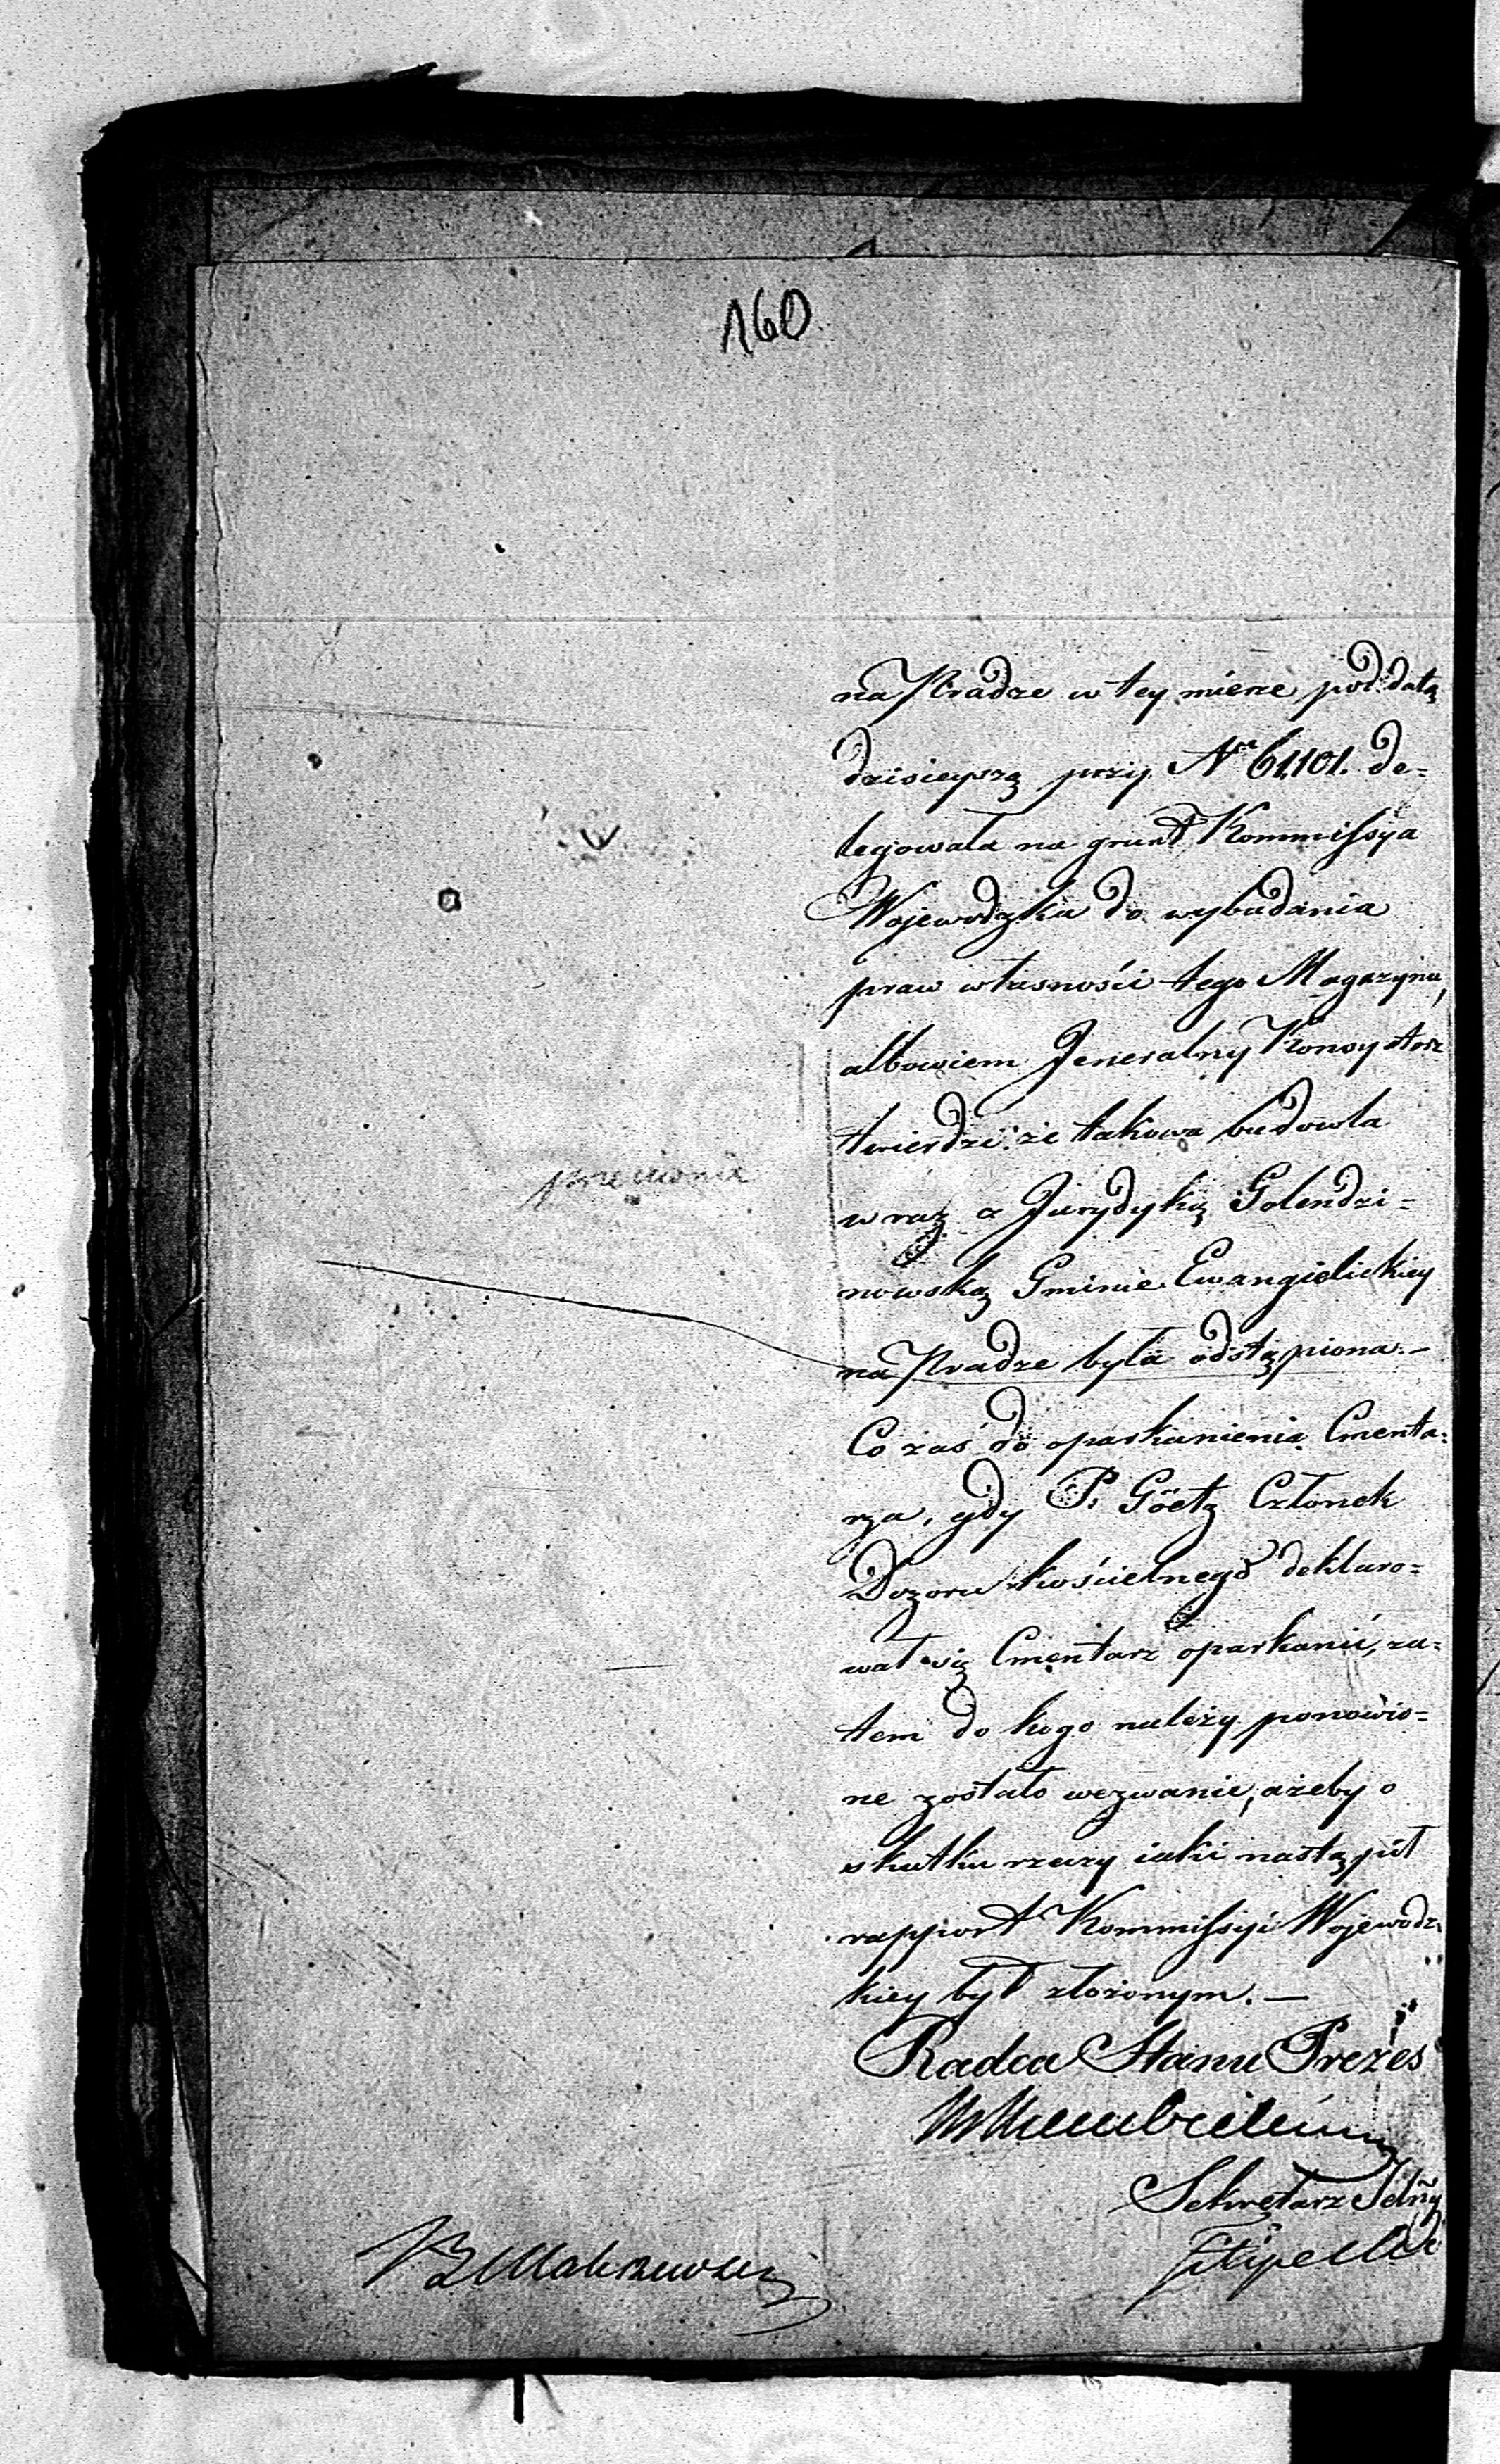 160
na Pradze w tey mierze, pod datą
dzisieyszą przy Nro 61,101. de=
legowała na grunt Kommissya
Wojewodzka do wybadania
praw własności tego Magazynu,
albowiem Jeneralny Konsystorz
twierdzi: że takowa budowla
wraz z Jurydyką Golendzi=
nowską Gminie Ewangielickiey
na Pradze była odstąpiona.—
Co zaś do oparkanienia Cmenta=
rza, gdy P. Göetz Członek
Dozoru kościelnego deklaro=
wał się Cmentarz oparkanić, za=
tem do kogo należy ponowio=
ne zostało wezwanie, ażeby o
skutku rzeczy iaki nastąpił
rapport Kommissyi Wojewodz=
kiey był złożonym.—
Radca Stanu Prezes
Sekretarz Jelny
Filipecki